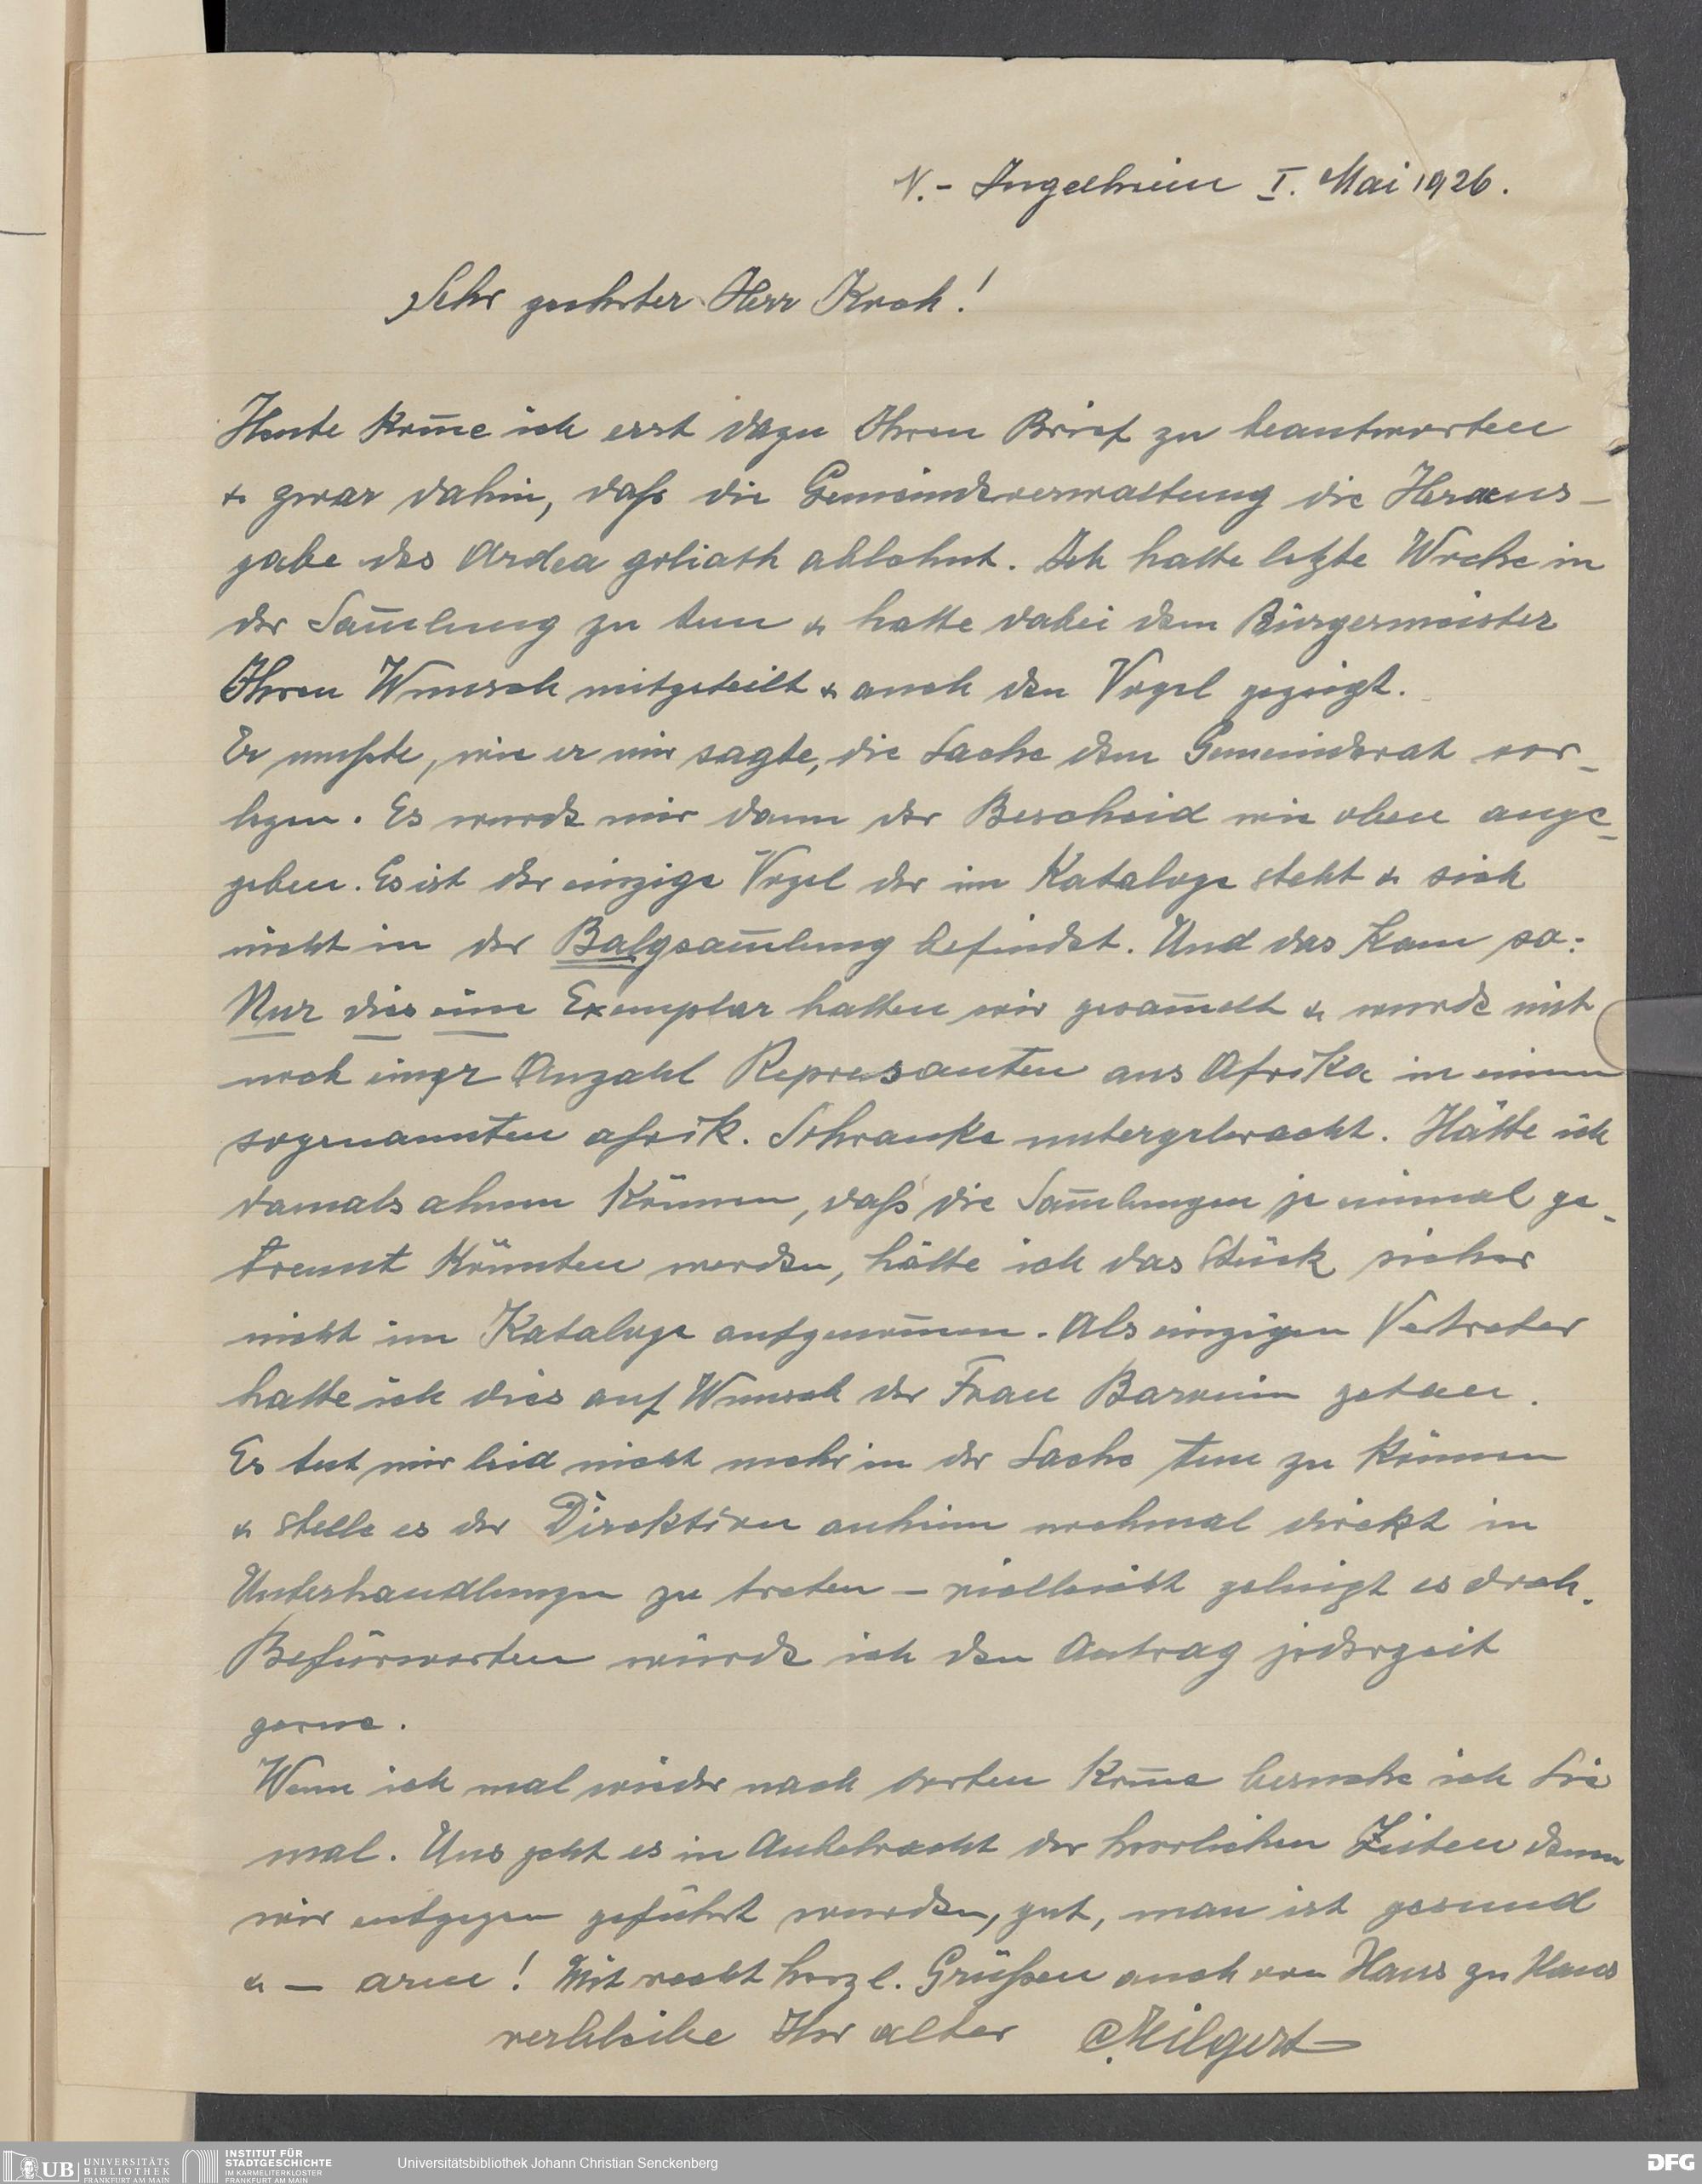 N.- Ingelheim I. Mai 1926.
Sehr geehrter Herr Koch!
Heute kom̅e ich erst dazu Ihren Brief zu beantworten
& zwar dahin, daß die Gemeindeverwaltung die Heraus-
gabe des Ardea goliath ablehnt. Ich hatte letzte Woche in
der Sam̅lung zu tun & hatte dabei dem Bürgermeister
Ihren Wunsch mitgeteilt & auch den Vogel gezeigt.
Er mußte, wie er mir sagte, die Sache dem Gemeinderat vor-
legen. Es wurde mir dann der Bescheid wie oben ange-
geben. Es ist der einzige Vogel der im Kataloge steht & sich
nicht in der Balgsam̅lung befindet. Und das kam so:
Nur dies eine Exemplar hatten wir gesam̅elt & wurde mit
noch einiger Anzahl Represanten aus Afrika in einem
sogenannten afrik. Schranke untergebracht. Hätte ich
damals ahnen können, daß die Sam̅lungen je einmal ge-
trennt könnten werden, hätte ich das Stück sicher
nicht im Kataloge aufgenom̅en. Als einzigen Vertreter
hatte ich dies auf Wunsch der Frau Baronin getan.
Es tut mir leid nicht mehr in der Sache tun zu können
& stelle es der Direktion anheim nochmal direkt in
Unterhandlungen zu treten – vielleicht gelingt es doch.
Befürworten würde ich den Antrag jederzeit
gerne.
Wenn ich mal wieder nach dorten kom̅e besuche ich Sie
mal. Uns geht es in Anbetracht der herrlichen Zeiten denen
wir entgegen geführt wurden, gut, man ist gesund
& – arm! Mit recht herzl. Grüßen auch von Haus zu Haus
verbleibe Ihr alter C. Hilgert
UB UNIVERSITÄTS
BIBLIOTHEK
FRANKFURT AM MAIN
INSTITUT FÜR
STADTGESCHICHTE
IM KARMELITERKLOSTER
FRANKFURT AM MAIN
Universitätsbibliothek Johann Christian Senckenberg
DFG